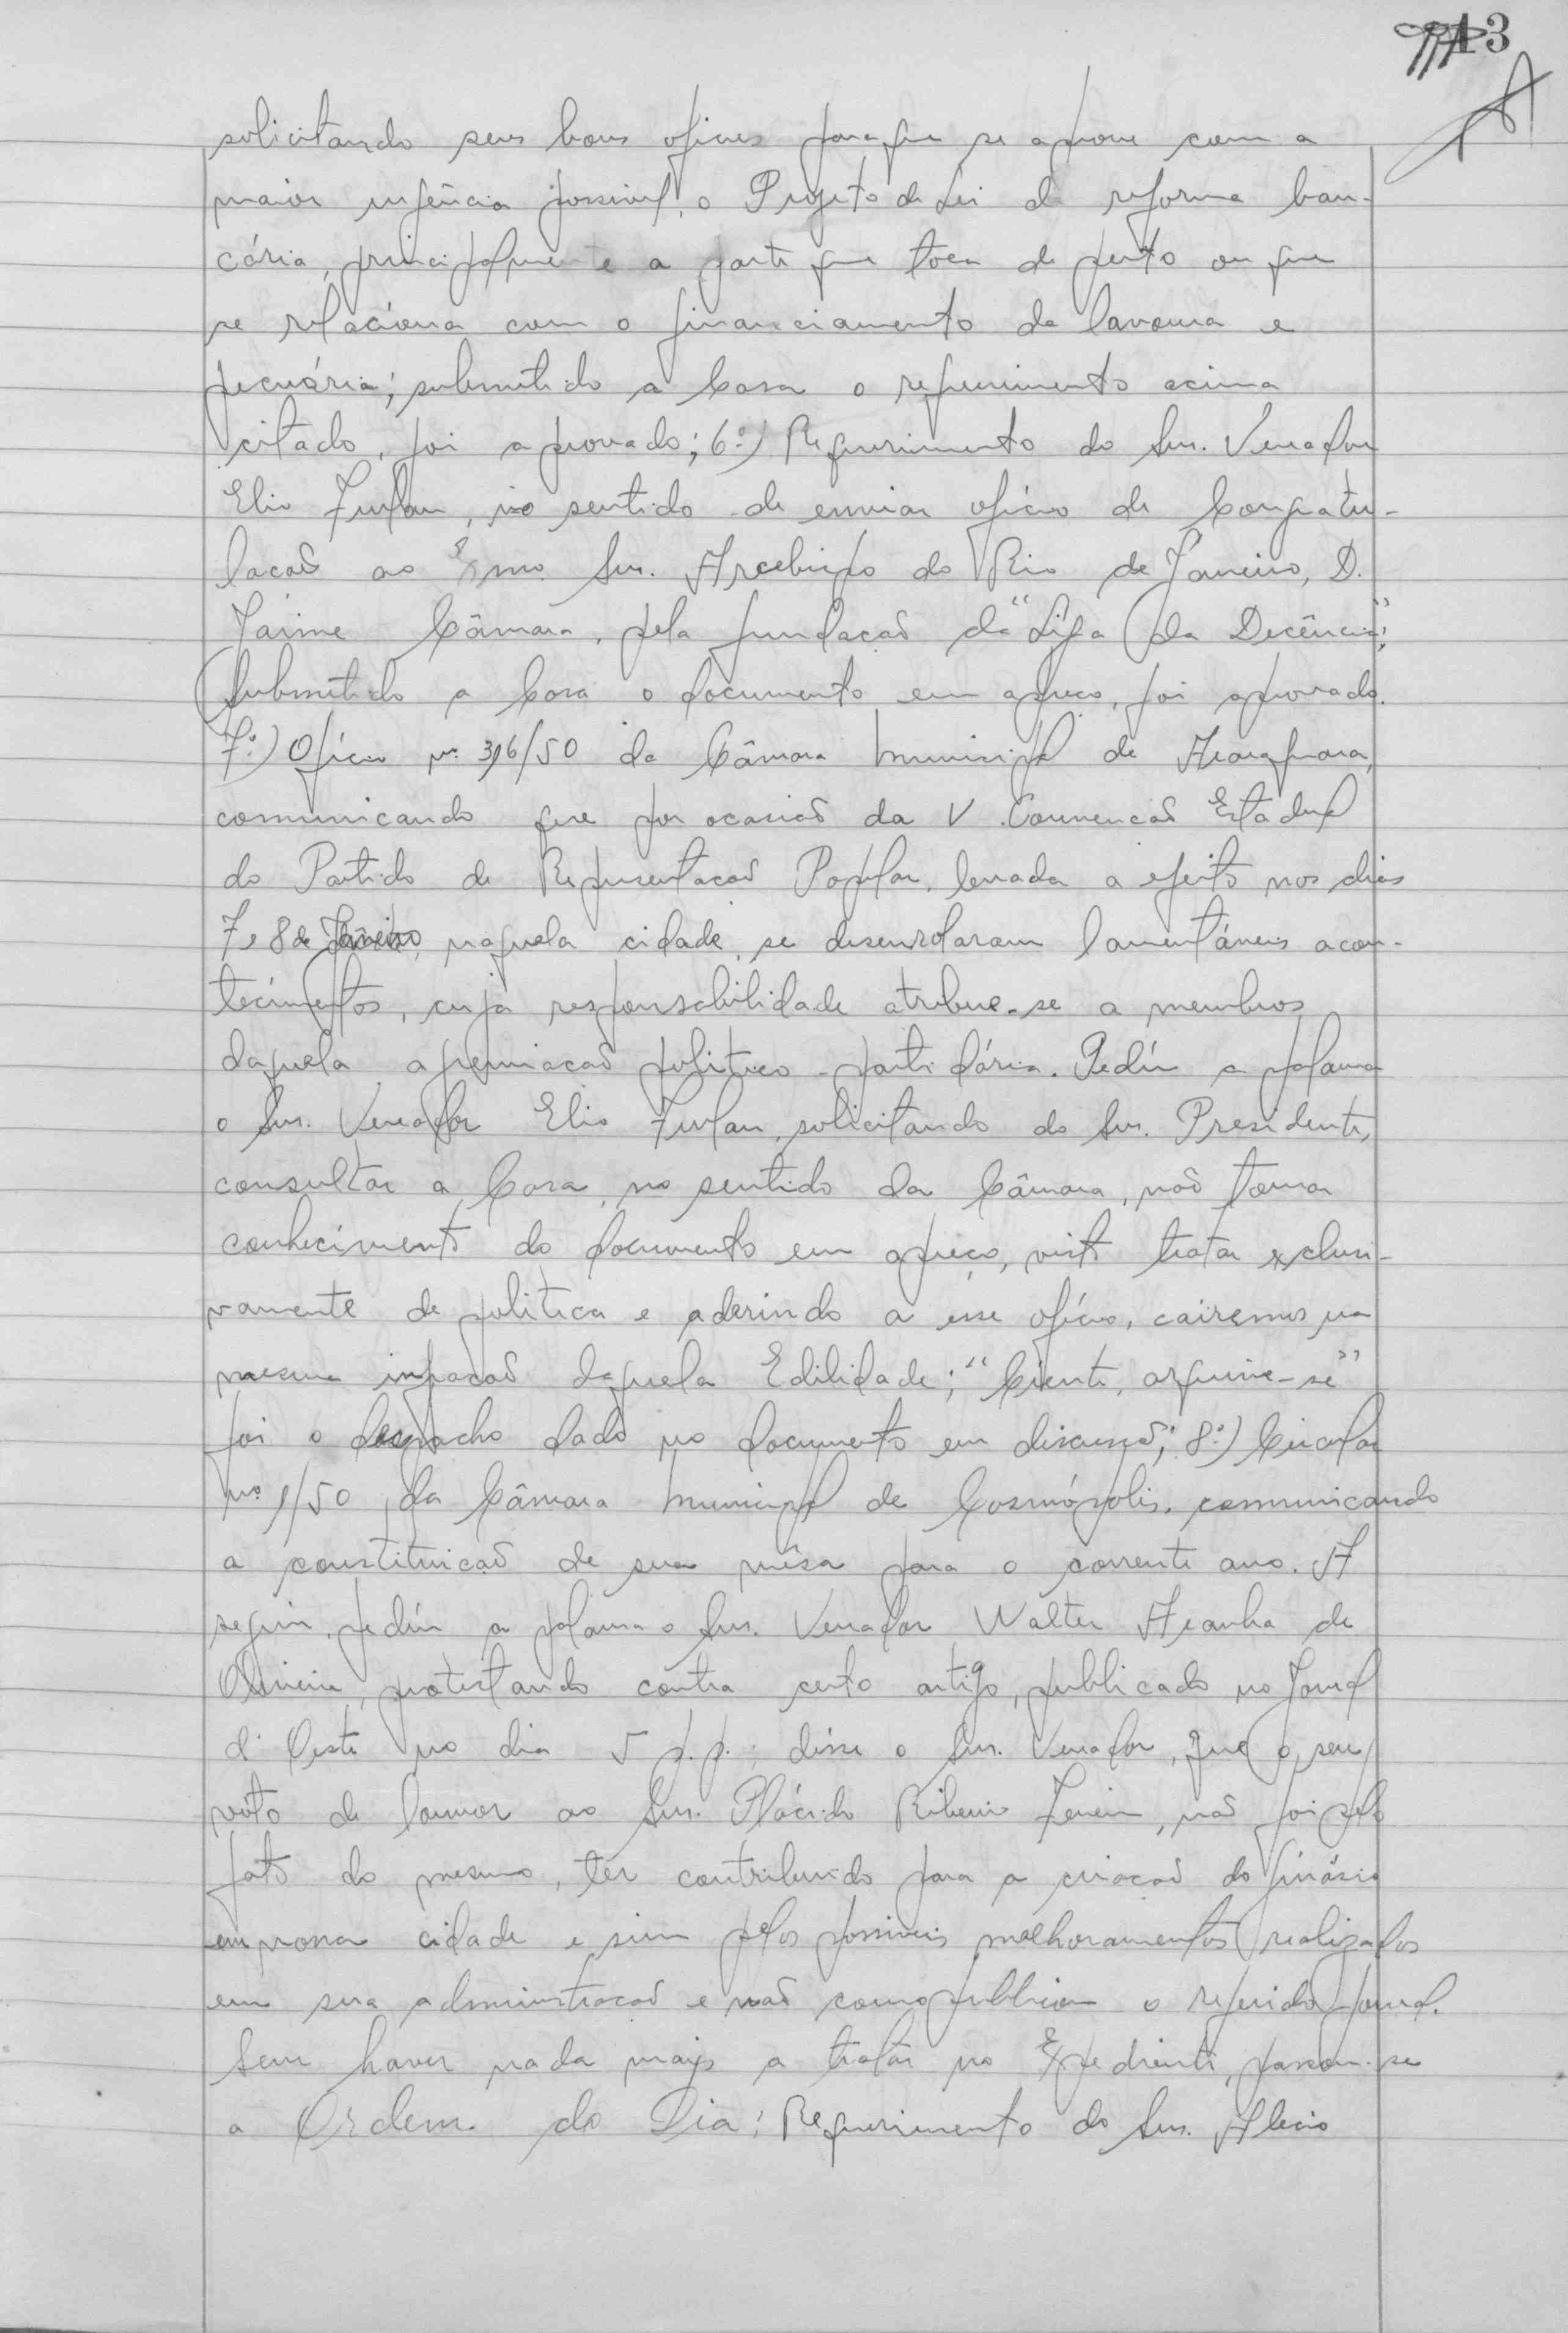 13
solicitando seus bons oficios para que se aprove com a
maior urgência possivel, o Projeto de Lei da reforma ban-
cária, principalmente a parte que toca de perto ou que
se relaciona com o financiamento da lavoura e
pecuária; submetido a Casa o requerimento acima
citado, foi aprovado; 6º) Requerimento do Snr. Vereador
Elio Furlan, no sentido de enviar ofício de Congratu-
lacaõ ao Exmo Snr. Arcebispo do Rio de Janeiro, D.
Jaime Câmara, pela fundacaõ da "Liga da Decência";
Submetido a Casa o documento em apreço, foi aprovado.
7º) Ofício nº 316/50 da Câmara Municipal de Araraquara,
comunicando que por ocasiaõ da V Convencaõ Estadual
do Partido de Representacaõ Popular, levada a efeito nos dias
7 e 8 de Janeiro, naquela cidade, se desenrolaram lamentáveis acon-
tecimentos, cuja responsabilidade atribue-se a membros
daquela agremiacaõ politico-partidária. Pediu a palavra
o Snr. Vereador Elio Furlan, solicitando do Snr. Presidente,
consultar a Casa, no sentido da Câmara, naõ tomar
conhecimento do documento em apreço, visto tratar exclusi-
vamente de politica e aderindo a esse ofício, cairemos na
mesma infracaõ daquela Edilidade; "Ciente, arquive-se"
foi o despacho dado no documento em discussaõ; 8º) Circular
nº 1/50 da Câmara Municipal de Cosmópolis, comunicando
a constituicaõ de sua mêsa para o corrente ano. A
seguir, pediu a palavra o Snr. Vereador Walter Aranha de
Oliveira, protestando contra certo artigo, publicado no Jornal
d' Oeste no dia 5 p.p.; disse o Snr. Vereador, que o seu
voto de louvor ao Snr. Plácido Ribeiro Ferreira, naõ foi pelo
fato do mesmo, ter contribuido para a criacaõ do ginásio
em nossa cidade e sim pelos possiveis melhoramentos realizados
em sua administracaõ e naõ como publicou o referido jornal.
Sem haver nada mais a tratar no Expediente, passou-se
a Ordem do Dia: Requerimento do Snr. Alecio